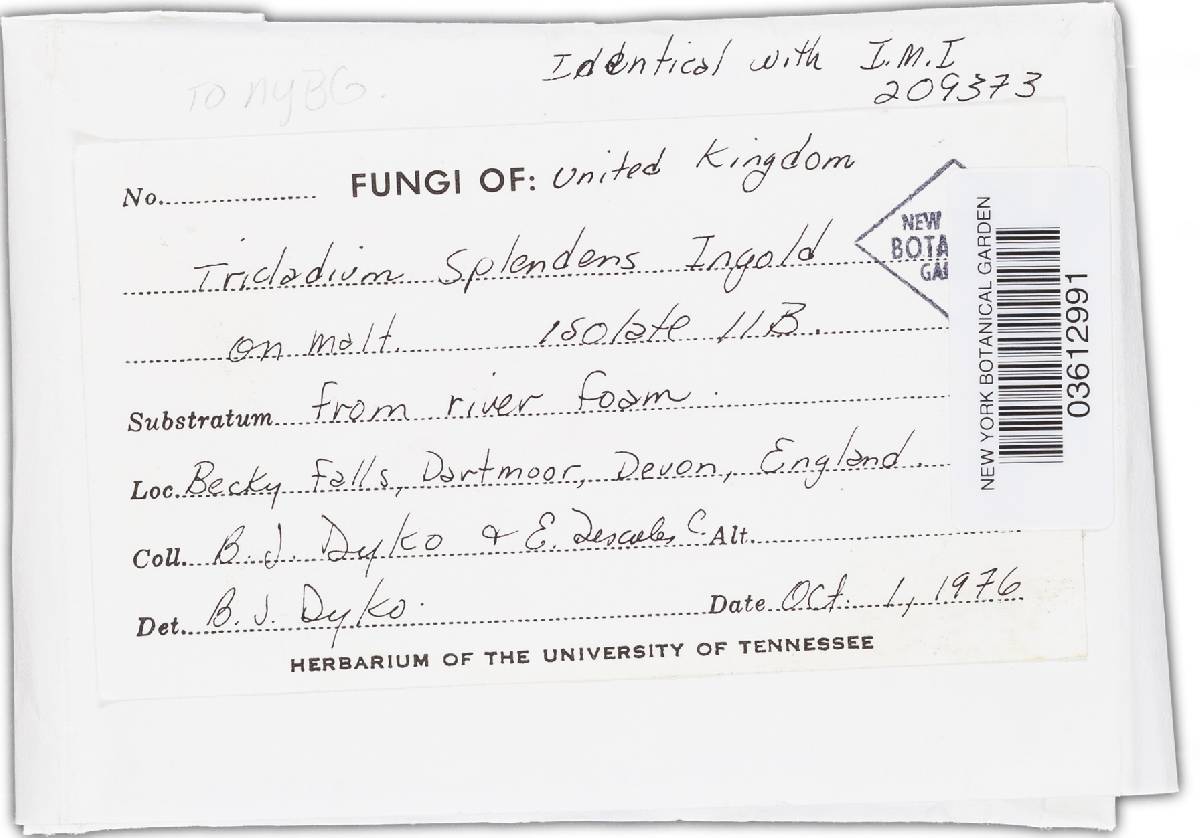 Identical with I.M.I
209373
TO NYBG.
No. FUNGI OF: United Kingdom
Tricladium Splendens Ingold
on malt. isolate 11B.
Substratum from river foam.
Loc. Becky Falls, Dartmoor, Devon, England.
Coll. B.J. Dyko & E. Descales C. Alt.
Det. B.J. Dyko. Date Oct. 1, 1976
HERBARIUM OF THE UNIVERSITY OF TENNESSEE
NEW
BOTA
GAR
NEW YORK BOTANICAL GARDEN
03612991